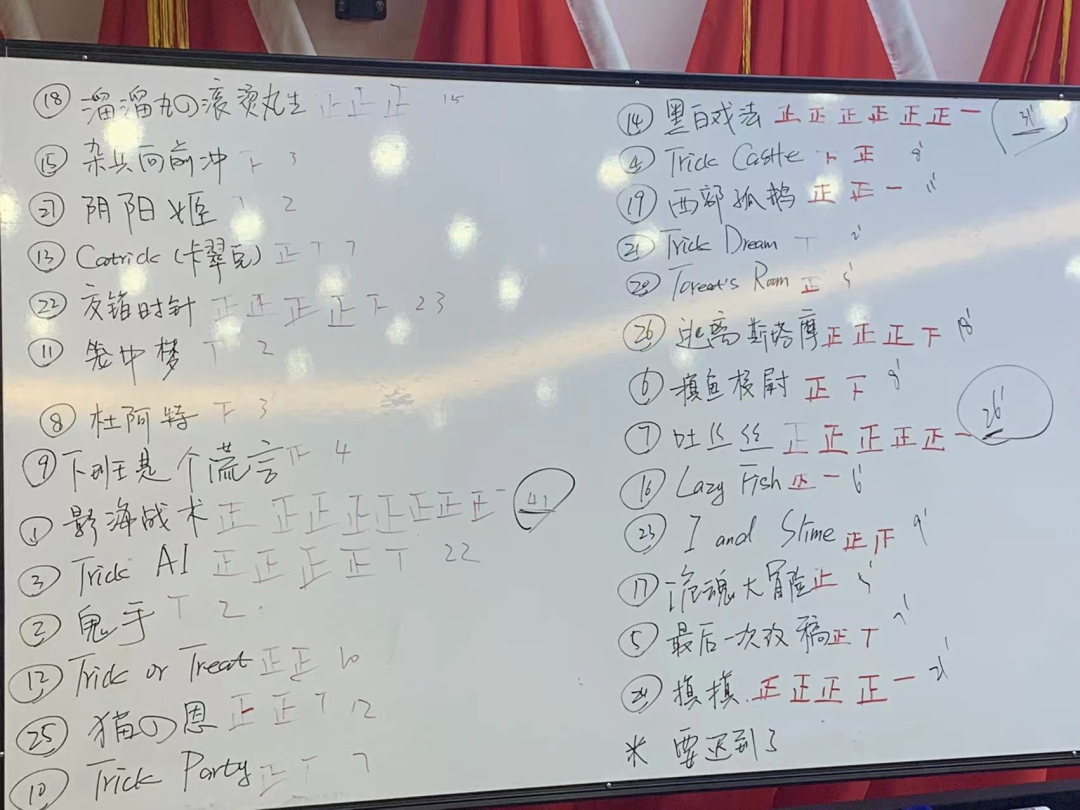 ⑱ 溜溜丸の滚烫丸生 正正正 15
⑮ 杂兵向前冲 下 3
㉗ 阴阳姬 丅 2
⑬ Catrick (卡翠克) 正丅 7
㉒ 交错时针 正正正正下 23
⑪ 笼中梦 丅 2
⑧ 杜阿特 下 3
⑨ 下班是个谎言 4
① 影海战术 正正正正正正正正一 41
③ Trick AI 正正正正丅 22
② 鬼手 丅 2
⑫ Trick or Treat 正正 10
㉕ 猫の恩 正正丅 12
⑩ Trick Party 正丅 7
⑭ 黑白戏法 正正正正正正一 31'
④ Trick Castle 下正 8'
⑲ 西部孤鹅 正正一 11'
㉑ Trick Dream 丅 2'
⑳ Toreat's Room 正 5'
㉖ 逃离斯塔摩 正正正下 18'
⑥ 摸鱼校尉 正下 8'
⑦ 吐丝丝 正正正正正一 26'
⑯ Lazy Fish 正一 6'
㉓ I and Slime 正 9'
⑰ 魂大冒险 正 5'
⑤ 最后一次改稿 正丅 7'
㉔ 摸摸 正正正正一 21'
米 要迟到了